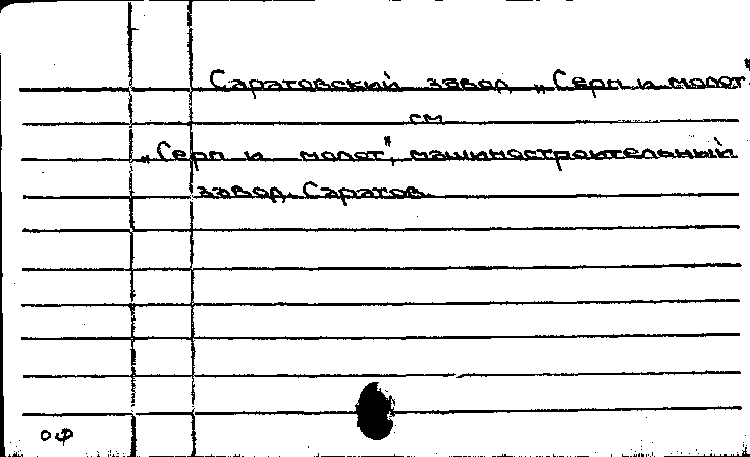 Саратовский завод „Серп и молот"
см
„Серп и молот", машиностроительный
завод. Саратов.
оф